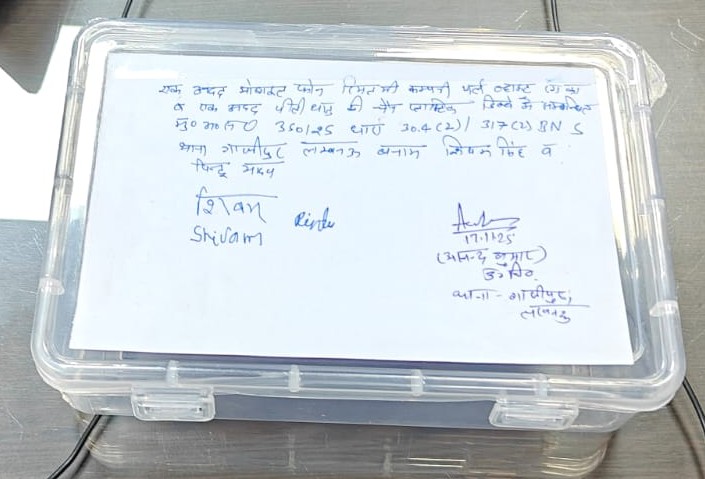 एक अदद मोबाइल फोन रियलमी कम्पनी पर्ल व्हाइट रंग का
व एक अदद पीली धातु की चैन प्लास्टिक डिब्बे में सम्बन्धित
मु0अ0सं0 350/25 धारा 304(2)/ 317(2) BNS
थाना गाजीपुर लखनऊ बनाम शिवम सिंह व
रिन्टू
शिवम
Shivam
17.11.25
उ0नि0
थाना - गाजीपुर,
लखनऊ